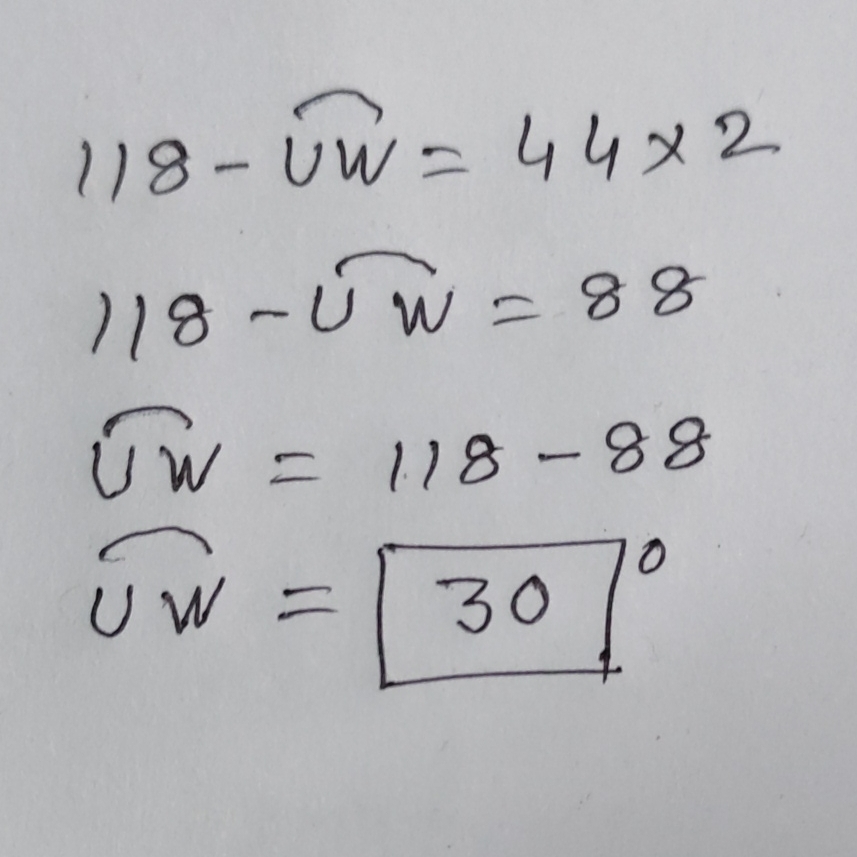 118 - \overset{\frown}{UW} = 44 × 2
118 - \overset{\frown}{UW} = 88
\overset{\frown}{UW} = 118 - 88
\overset{\frown}{UW} = 30°